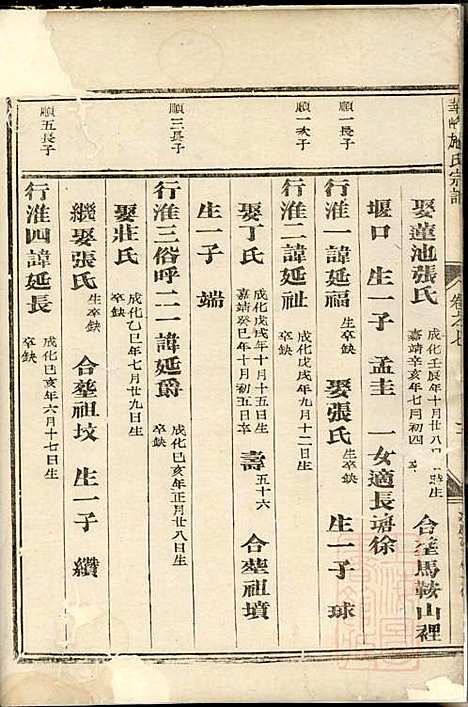 施氏宗譜
卷之七
娶蓮池張氏 成化壬辰年十月廿八日 時生 嘉靖辛亥年七月初四 卒 合塟馬鞍山裡
堰口 生一子 孟圭 一女適長塘徐
順一長子
行淮一諱延福 生卒缺 娶張氏 生卒缺 生一子 球
順一次子
行淮二諱延祉 成化戊戌年九月十二日生 卒缺
娶丁氏 成化戊戌年十月十五日生 嘉靖癸巳年十月初五日卒 壽 五十六 合塟祖墳
生一子 端
順三長子
行淮三俗呼二一諱延爵 成化己亥年正月廿八日生 卒缺
娶莊氏 成化乙巳年七月廿九日生 卒缺
繼娶張氏 生卒缺 合塟祖坟 生一子 纘
順五長子
行淮四諱延長 成化己亥年六月十七日生 卒缺